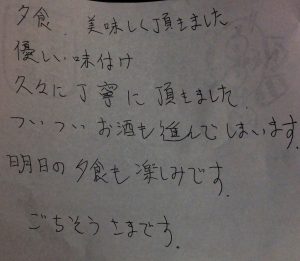 夕食、美味しく頂きました
優しい味付け
久々に丁寧に頂きました.
ついつい お酒も進んでしまいます.
明日の夕食も楽しみです.
ごちそうさまです.